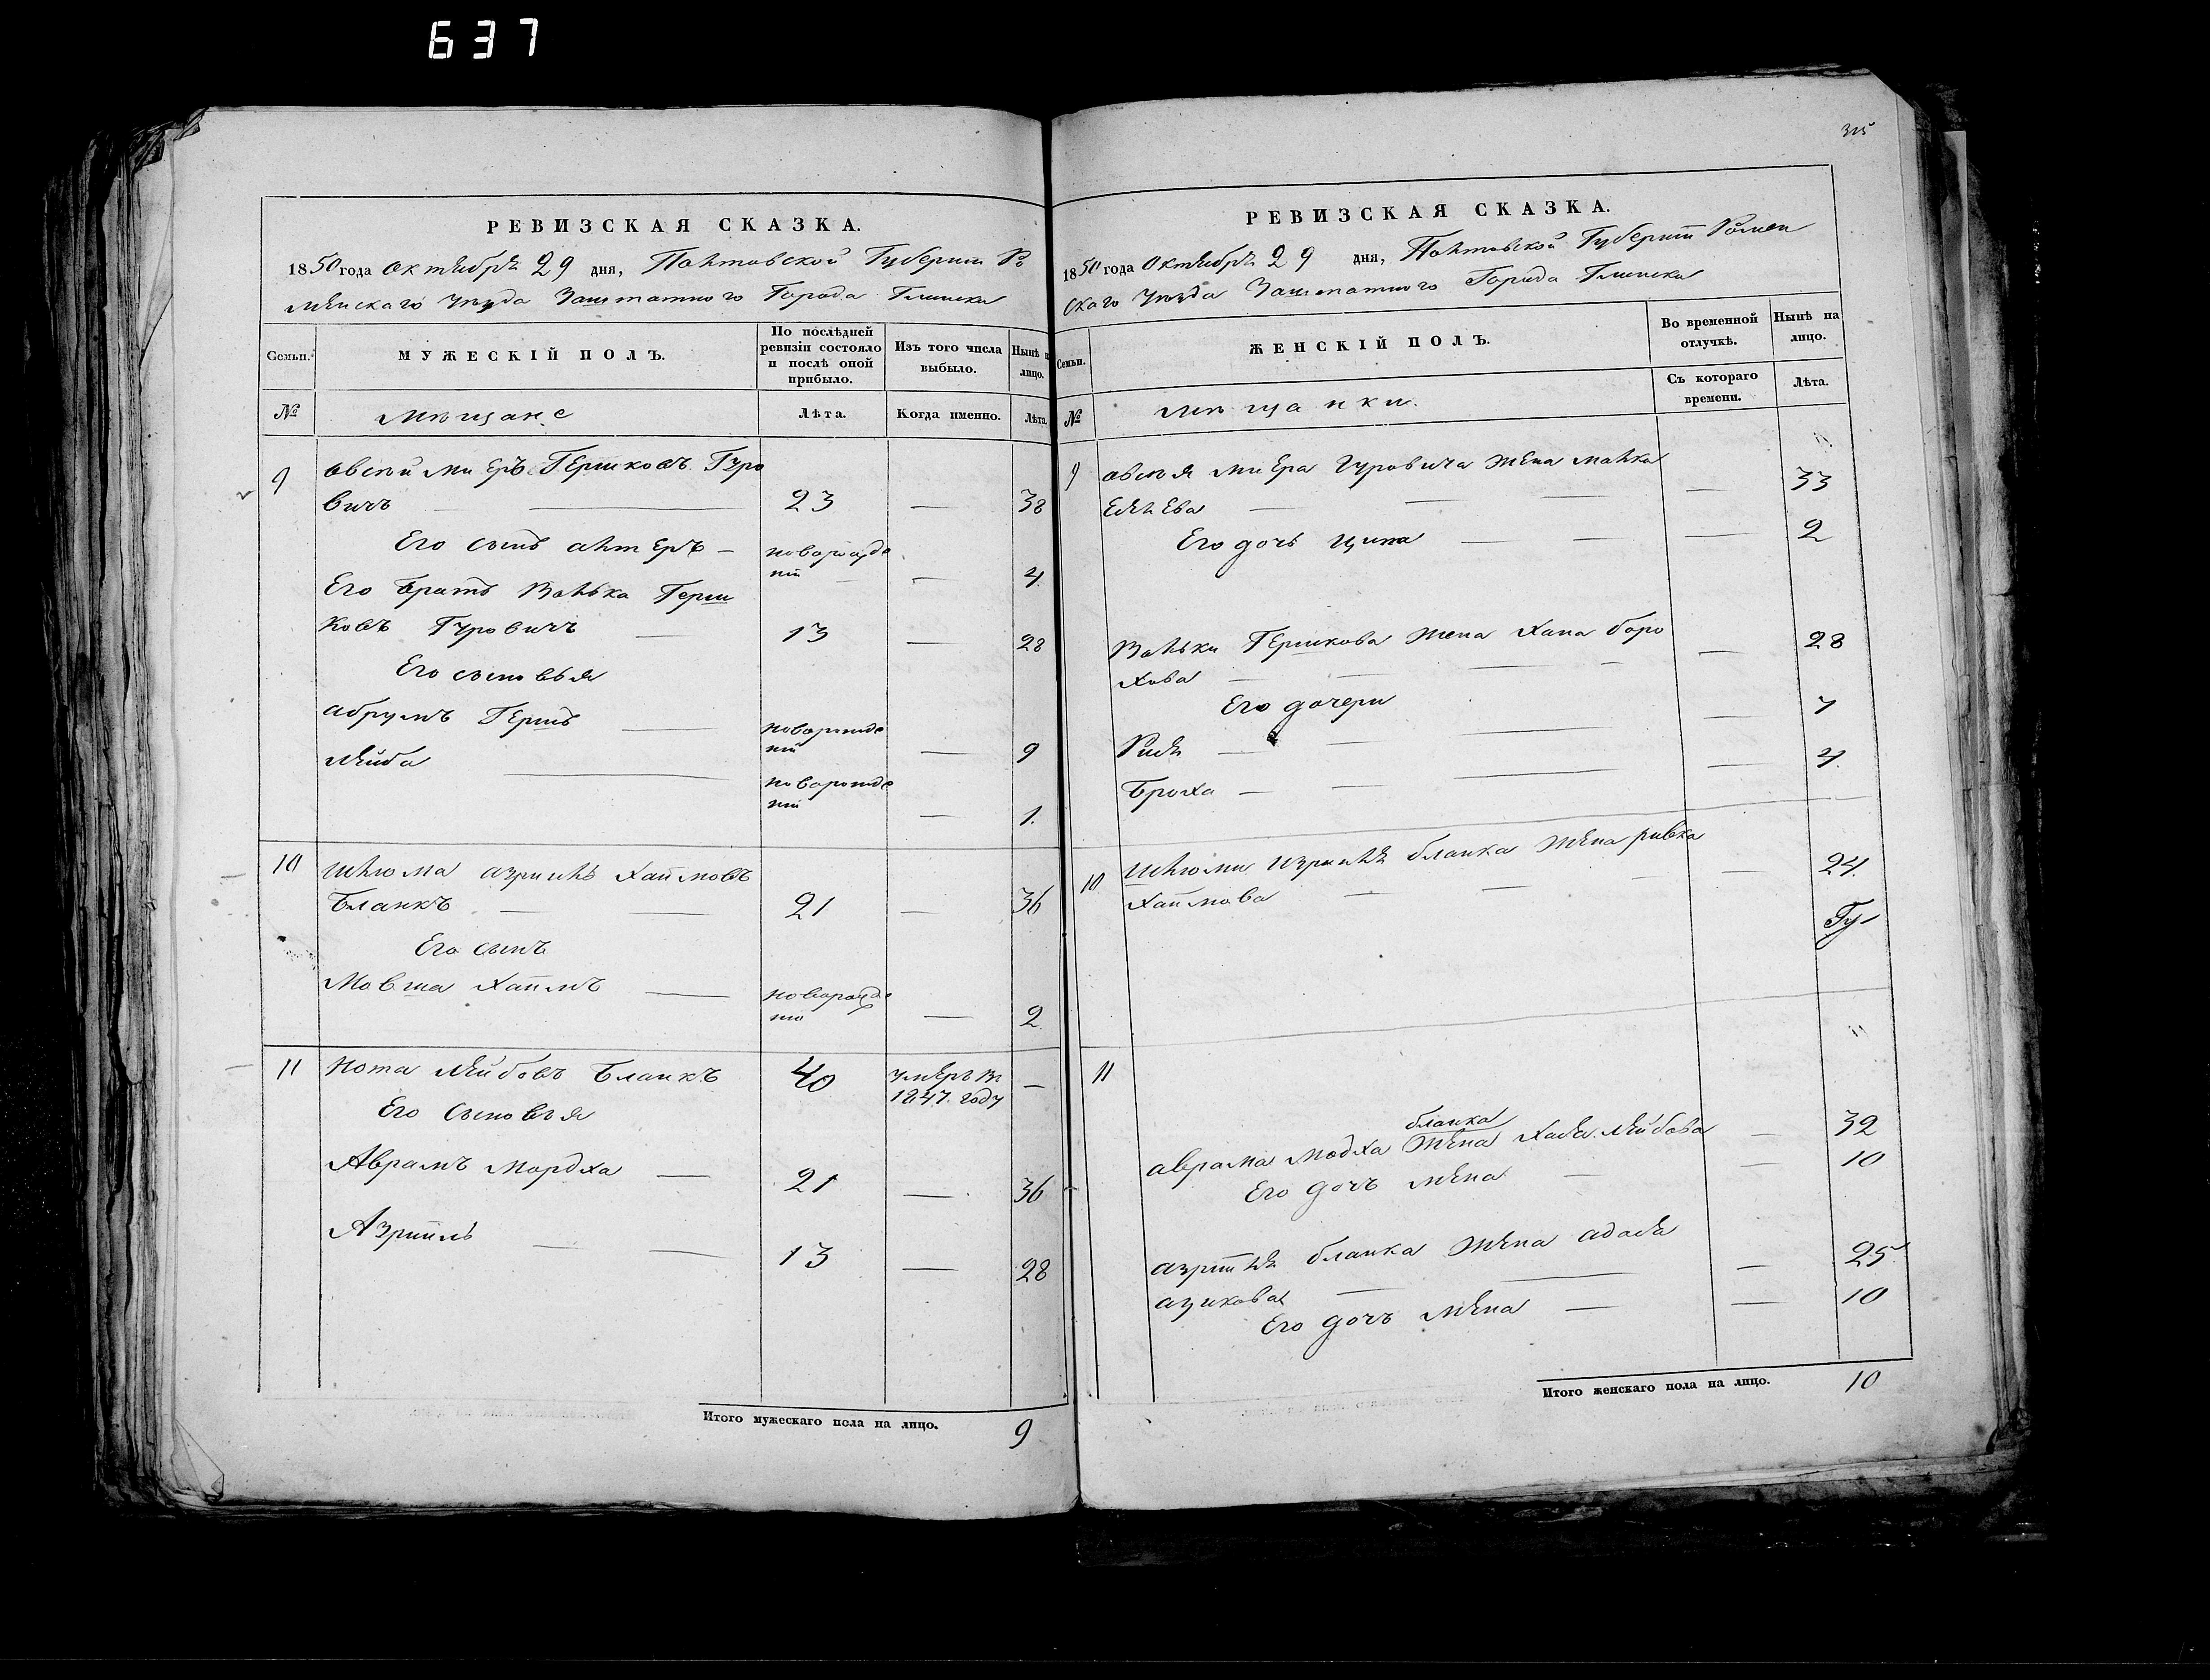 637
РЕВИЗСКАЯ СКАЗКА.
1850 года октября 29 дня, Полтовской Губерніи Ро
менскаго уезда Заштатного Города Глинска
Семьи.
МУЖЕСКІЙ ПОЛЪ.
По послѣдней ревизіи состояло и послѣ оной прибыло.
Изъ того числа выбыло.
Нынѣ
лицо.
№
мещане
Лѣта.
Когда именно.
Лѣта.
9 овсей миеръ Гершковъ Гуро
вичъ — 23 — 38
Его сынъ алтеръ — 4
Его братъ Волька Герш
ковъ Гуровичъ — 13 — 28
Его сыновья
абрумъ Гершъ — новорожде
ній — 9
лейба — новорожде
ній — 1.
10 шлюма азриель Хаимовъ
Бланкъ — 21 — 36
Его сынъ
Мовша Хаимъ — 2
11 Нота лейбовъ Бланкъ 40 умеръ въ —
1847. году
Его сыновья
Аврамъ Мордха — 21 — 36
Азриилъ — 13 — 28
Итого мужескаго пола на лицо. 9
315
РЕВИЗСКАЯ СКАЗКА.
1850 года октября 29 дня, Полтовской Губерніи Ромен
скаго уезда Заштатного Города Глинска
Семьи.
ЖЕНСКІЙ ПОЛЪ.
Во временной отлучкѣ.
Нынѣ на лицо.
№
мещанки.
Съ котораго времени.
Лѣта.
9 овсея миера Гуровича жена малка
— 33
Его дочь ципа — 2
Вольки Гершкова жена Хана боро
хова — 28
Его дочери
— 7
Броха — 4.
10 шлюми бланка жена ривка
Хаимова — 24.
11
бланка
аврама модха жена Хася лейбова — 32
Его дочъ мена — 10
бланка жена адася
ицикова — 25
Его дочъ мена — 10
Итого женскаго пола на лицо. 10